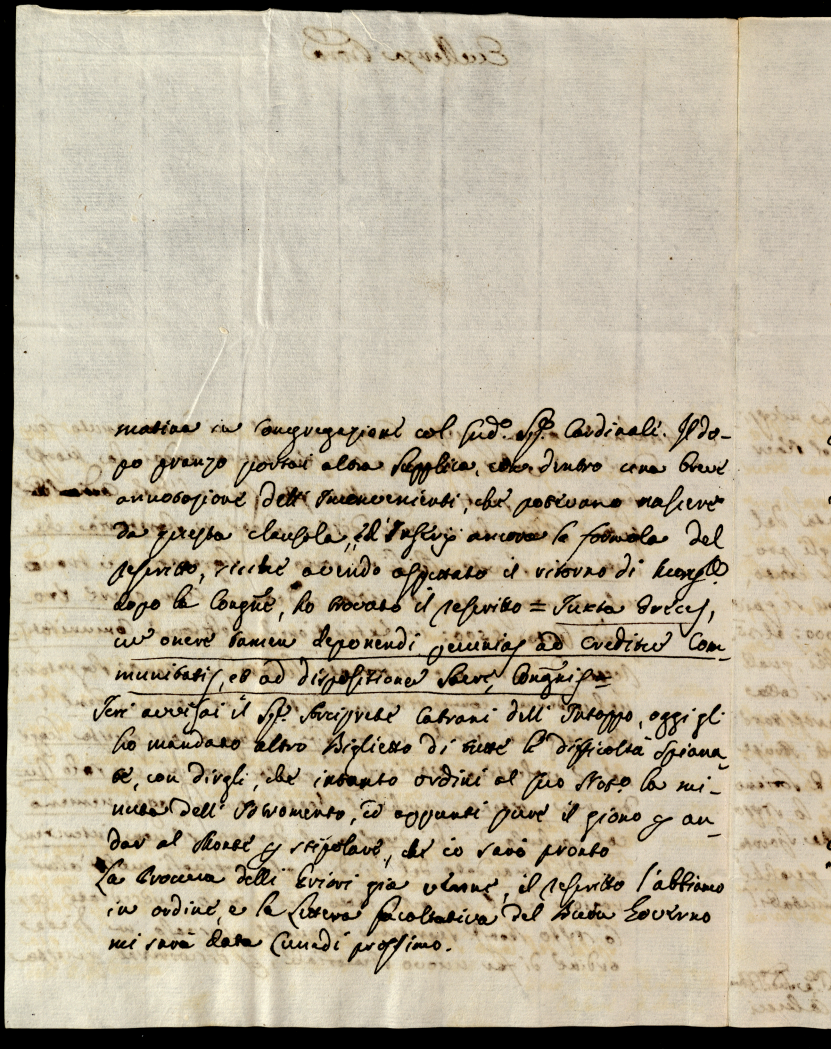 matina in Congregazione col sud.º Sig.r Cardinale. Il do-
po pranzo portai altra supplica, con dentro una breve
annotazione dell' Inconvenienti, che potevano nascere
da questa clausola, ed inserij ancora la formola del
rescritto, sicche avendo aspettato il ritorno di Monsig.re
dopo la Congñe, ho trovato il rescritto = Juxta preces,
cum onere tamen deponendi pecunias ad creditum Com-
munitatis, et ad dispositionem Sacræ Congñis =
Ieri avvisai il Sig.r Arciprete Catrani dell' Intoppo, oggi gli
ho mandato altro Biglietto di tutte le difficoltà spiana-
te, con dirgli, che intanto ordini al suo Not.o la mi-
nuta dell' Istromento, ed appunti pure il giorno p an-
dar al Monte p stipolare, che io sarò pronto
La Procura delli Priori già venne, il rescritto l'abbiamo
in ordine, e la Lettera facoltativa del Buon Governo
mi sarà data Lunedì prossimo.